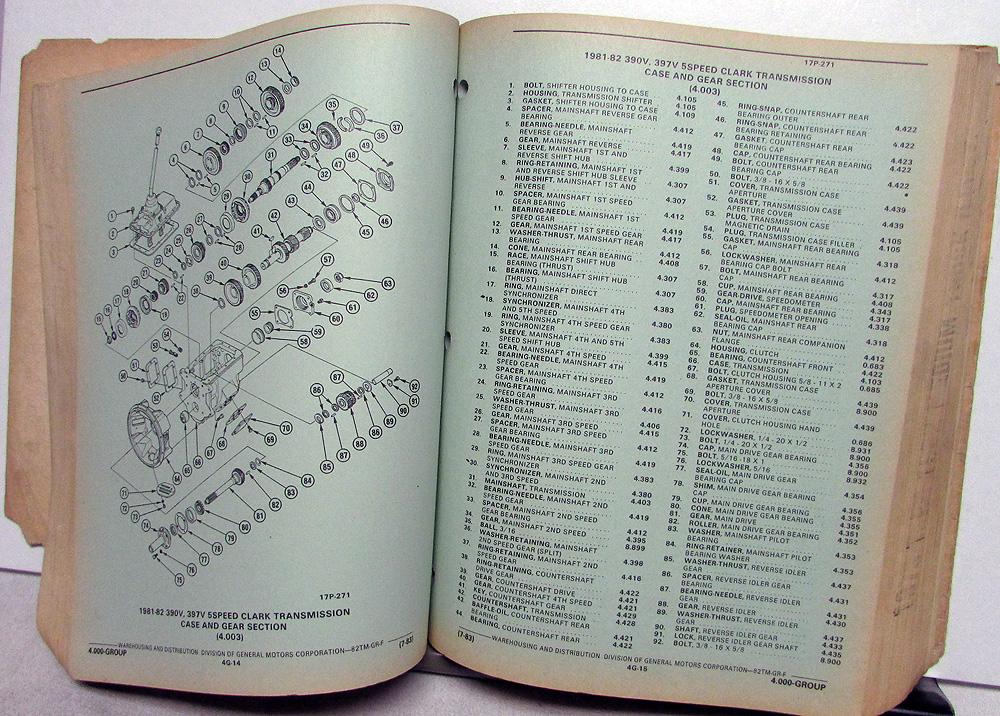 17P-271
1981-82 390V, 397V 5SPEED CLARK TRANSMISSION
CASE AND GEAR SECTION
(4.003)
WAREHOUSING AND DISTRIBUTION DIVISION OF GENERAL MOTORS CORPORATION—82TM-GR-F
(7-83)
4.000-GROUP
4G-14
17P-271
1981-82 390V, 397V 5SPEED CLARK TRANSMISSION
CASE AND GEAR SECTION
(4.003)
1. BOLT, SHIFTER HOUSING TO CASE 4.105
2. HOUSING, TRANSMISSION SHIFTER 4.105
3. GASKET, SHIFTER HOUSING TO CASE 4.109
4. SPACER, MAINSHAFT REVERSE GEAR
BEARING 4.412
5. BEARING-NEEDLE, MAINSHAFT
REVERSE GEAR
6. GEAR, MAINSHAFT REVERSE 4.419
7. SLEEVE, MAINSHAFT 1ST AND 4.417
REVERSE SHIFT HUB 4.399
8. RING-RETAINING, MAINSHAFT 1ST
AND REVERSE SHIFT HUB SLEEVE
9. HUB-SHIFT, MAINSHAFT 1ST AND 4.307
REVERSE
10. SPACER, MAINSHAFT 1ST SPEED 4.307
GEAR BEARING
11. BEARING-NEEDLE, MAINSHAFT 1ST 4.412
SPEED GEAR
12. GEAR, MAINSHAFT 1ST SPEED GEAR 4.419
13. WASHER-THRUST, MAINSHAFT REAR 4.417
BEARING
14. CONE, MAINSHAFT REAR BEARING 4.412
15. RACE, MAINSHAFT SHIFT HUB 4.408
BEARING (THRUST)
16. BEARING, MAINSHAFT SHIFT HUB 4.307
(THRUST)
17. RING, MAINSHAFT DIRECT 4.307
SYNCHRONIZER
18. SYNCHRONIZER, MAINSHAFT 4TH 4.383
AND 5TH SPEED
19. RING, MAINSHAFT 4TH SPEED GEAR 4.380
SYNCHRONIZER
20. SLEEVE, MAINSHAFT 4TH AND 5TH 4.383
SPEED SHIFT HUB
21. GEAR, MAINSHAFT 4TH SPEED 4.399
22. BEARING-NEEDLE, MAINSHAFT 4TH 4.415
SPEED GEAR
23. SPACER, MAINSHAFT 4TH SPEED 4.419
GEAR
24. RING-RETAINING, MAINSHAFT 3RD
SPEED GEAR
25. WASHER-THRUST, MAINSHAFT 3RD 4.416
SPEED GEAR
26. GEAR, MAINSHAFT 3RD SPEED 4.406
27. SPACER, MAINSHAFT 3RD SPEED 4.415
GEAR BEARING
28. BEARING-NEEDLE, MAINSHAFT 3RD 4.412
SPEED GEAR
29. RING, MAINSHAFT 3RD SPEED GEAR 4.419
SYNCHRONIZER
30. SYNCHRONIZER, MAINSHAFT 2ND 4.383
AND 3RD SPEED
31. MAINSHAFT, TRANSMISSION 4.380
32. BEARING-NEEDLE, MAINSHAFT 2ND 4.403
SPEED GEAR
33. SPACER, MAINSHAFT 2ND SPEED 4.419
GEAR
34. GEAR, MAINSHAFT 2ND SPEED 4.412
35. BALL, 3/16 4.395
36. WASHER-RETAINING, MAINSHAFT 8.899
2ND SPEED GEAR (SPLIT)
37. RING-RETAINING, MAINSHAFT 2ND 4.398
SPEED GEAR
38. RING-RETAINING, COUNTERSHAFT 4.416
DRIVE GEAR
39. GEAR, COUNTERSHAFT DRIVE 4.422
40. GEAR, COUNTERSHAFT 4TH SPEED 4.421
41. KEY, COUNTERSHAFT GEAR 4.421
42. COUNTERSHAFT, TRANSMISSION 4.429
43. BAFFLE-OIL, COUNTERSHAFT REAR 4.428
BEARING
44. BEARING, COUNTERSHAFT REAR 4.421
4.422
45. RING-SNAP, COUNTERSHAFT REAR
BEARING OUTER 4.422
46. RING-SNAP, COUNTERSHAFT REAR
BEARING RETAINING 4.422
47. GASKET, COUNTERSHAFT REAR
BEARING CAP 4.423
48. CAP, COUNTERSHAFT REAR BEARING
49. BOLT, COUNTERSHAFT REAR 4.422
BEARING CAP
50. BOLT, 3/8 - 16 X 5/8 *
51. COVER, TRANSMISSION CASE
APERTURE 4.439
52. GASKET, TRANSMISSION CASE
APERTURE COVER 4.439
53. PLUG, TRANSMISSION CASE
MAGNETIC DRAIN 4.105
54. PLUG, TRANSMISSION CASE FILLER 4.105
55. GASKET, MAINSHAFT REAR BEARING
CAP 4.318
56. LOCKWASHER, MAINSHAFT REAR
BEARING CAP BOLT
57. BOLT, MAINSHAFT REAR BEARING
CAP 4.317
58. CUP, MAINSHAFT REAR BEARING 4.408
59. GEAR-DRIVE, SPEEDOMETER 4.343
60. CAP, MAINSHAFT REAR BEARING 4.317
61. PLUG, SPEEDOMETER OPENING 4.338
62. SEAL-OIL, MAINSHAFT REAR
BEARING CAP 4.318
63. NUT, MAINSHAFT REAR COMPANION
FLANGE 4.412
64. HOUSING, CLUTCH 0.683
65. BEARING, COUNTERSHAFT FRONT 4.422
66. CASE, TRANSMISSION 4.103
67. BOLT, CLUTCH HOUSING 5/8 - 11 X 2 0.685
68. GASKET, TRANSMISSION CASE
APERTURE COVER 4.439
69. BOLT, 3/8 - 16 X 5/8 8.900
70. COVER, TRANSMISSION CASE
APERTURE 4.439
71. COVER, CLUTCH HOUSING HAND
HOLE 0.686
72. LOCKWASHER, 1/4 - 20 X 1/2 8.931
73. BOLT, 1/4 - 20 X 1/2 8.900
74. CAP, MAIN DRIVE GEAR BEARING 4.356
75. BOLT, 5/16 -18 X 1 8.900
76. LOCKWASHER, 5/16 8.932
77. SEAL-OIL, MAIN DRIVE GEAR
BEARING CAP 4.354
78. SHIM, MAIN DRIVE GEAR BEARING
CAP 4.356
79. CUP, MAIN DRIVE GEAR BEARING 4.355
80. CONE, MAIN DRIVE GEAR BEARING 4.355
81. GEAR, MAIN DRIVE 4.351
82. ROLLER, MAIN DRIVE GEAR BEARING 4.352
83. WASHER, MAINSHAFT PILOT
BEARING 4.353
84. RING-RETAINER, MAINSHAFT PILOT
BEARING WASHER 4.353
85. WASHER-THRUST, REVERSE IDLER
GEAR 4.437
86. SPACER, REVERSE IDLER GEAR
BEARING 4.431
87. BEARING-NEEDLE, REVERSE IDLER
GEAR 4.431
88. GEAR, REVERSE IDLER 4.430
89. WASHER-THRUST, REVERSE IDLER
GEAR 4.437
90. SHAFT, REVERSE IDLER GEAR 4.433
91. LOCK, REVERSE IDLER GEAR SHAFT 4.435
92. BOLT, 3/8 - 16 X 5/8 8.900
(7-83)
WAREHOUSING AND DISTRIBUTION DIVISION OF GENERAL MOTORS CORPORATION—82TM-GR-F
4G-15
4.000-GROUP